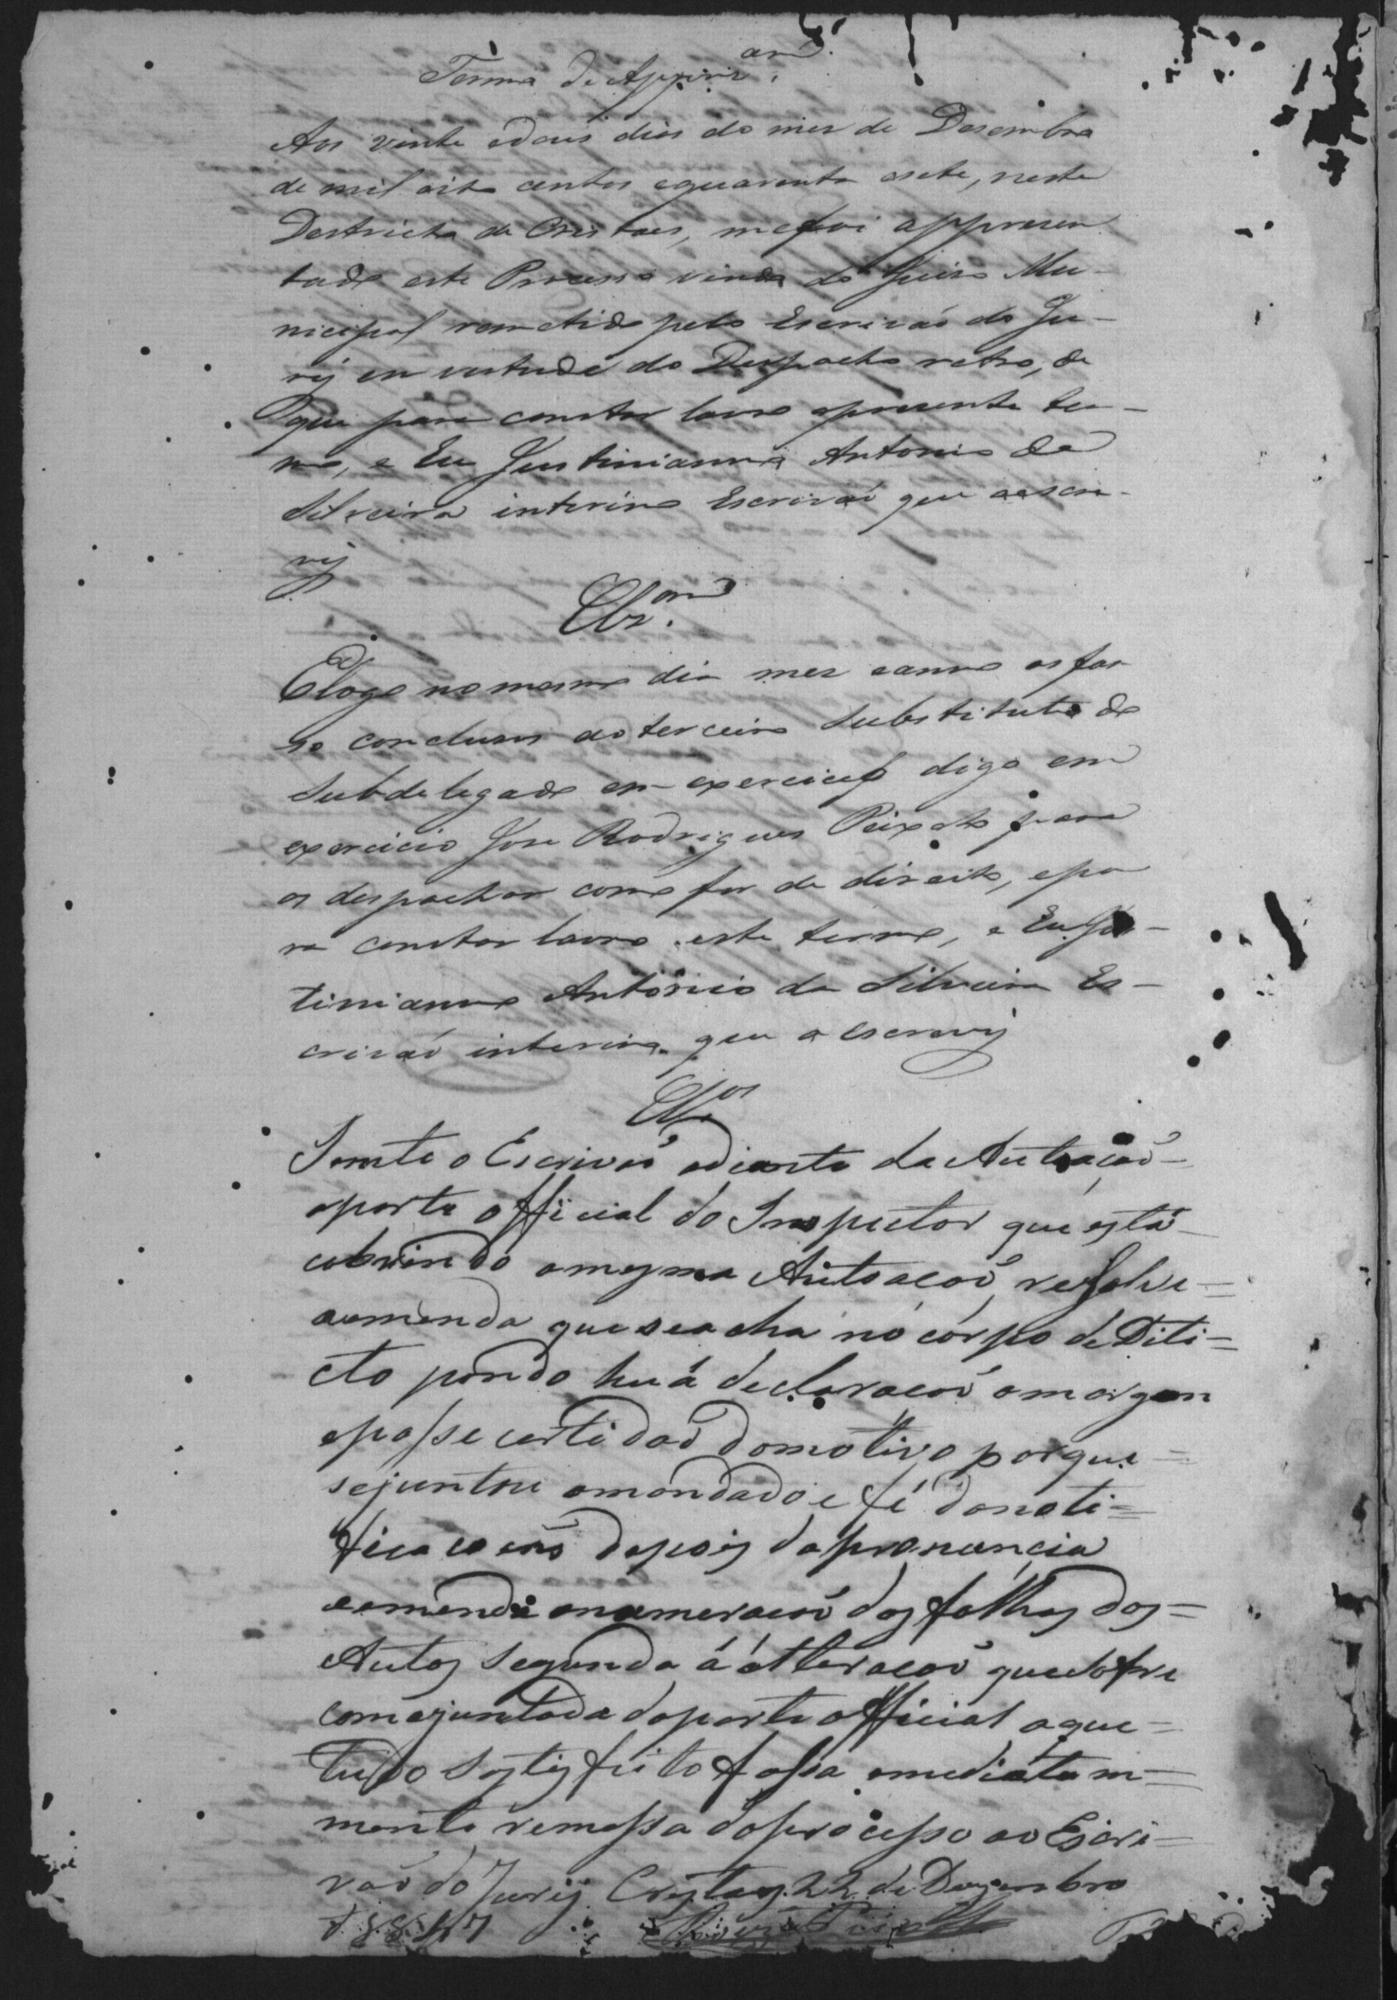 Termo de Appreз.am
Aos vinte e dous dias do mes de Desembro
de mil oito centos e quarenta e sete, neste
Destricto de Cristaes, me foi appresen
tado este Processo vindo do Juizo Mu-
nicipal remetido pelo Escrivaõ do Ju-
ry em vertude do Despacho retro, de
que para constar lavro o presente ter-
mo, e Eu Justinianno Antonio da
Silveira interino Escrivaõ que o escre-
vy
Clz.am
E logo no mesmo dia mez e anno os fas-
so concluzos ao terceiro Substituto do
Subdelegado em exercicio digo em
exercicio Jose Rodrigues Peixoto para
os despachar como for de direito, e pa
ra constar lavro este termo, e Eu Jus-
tinianno Antonio da Silveira Es-
crivaõ interino que o escrevy
Clos
Junte o Escrivaõ adiante da Autuaçaõ
aparte official do Inspector que está
cobrindo a mesma Autoacaõ, resalve
a emenda que se acha no corpo de Deli-
cto pondo huá declaracaõ a margem
e passe certidaõ do motivo por que
se juntou o mandado e fé da noti-
ficacaõ depois da pronuncia
e emende a numeracaõ das folhas dos
Autos segundo a alteracaõ que sofre
com a juntada da parte official o que
tudo satisfeito fassa emediatam-
mente remessa do processo ao Escri-
vaõ do Jury Cristaes 22 de Dezembro
de 1847